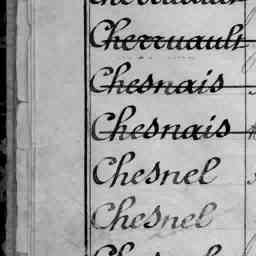 Cherruault
Cherruault
Chesnais
Chesnais
Chesnel
Chesnel